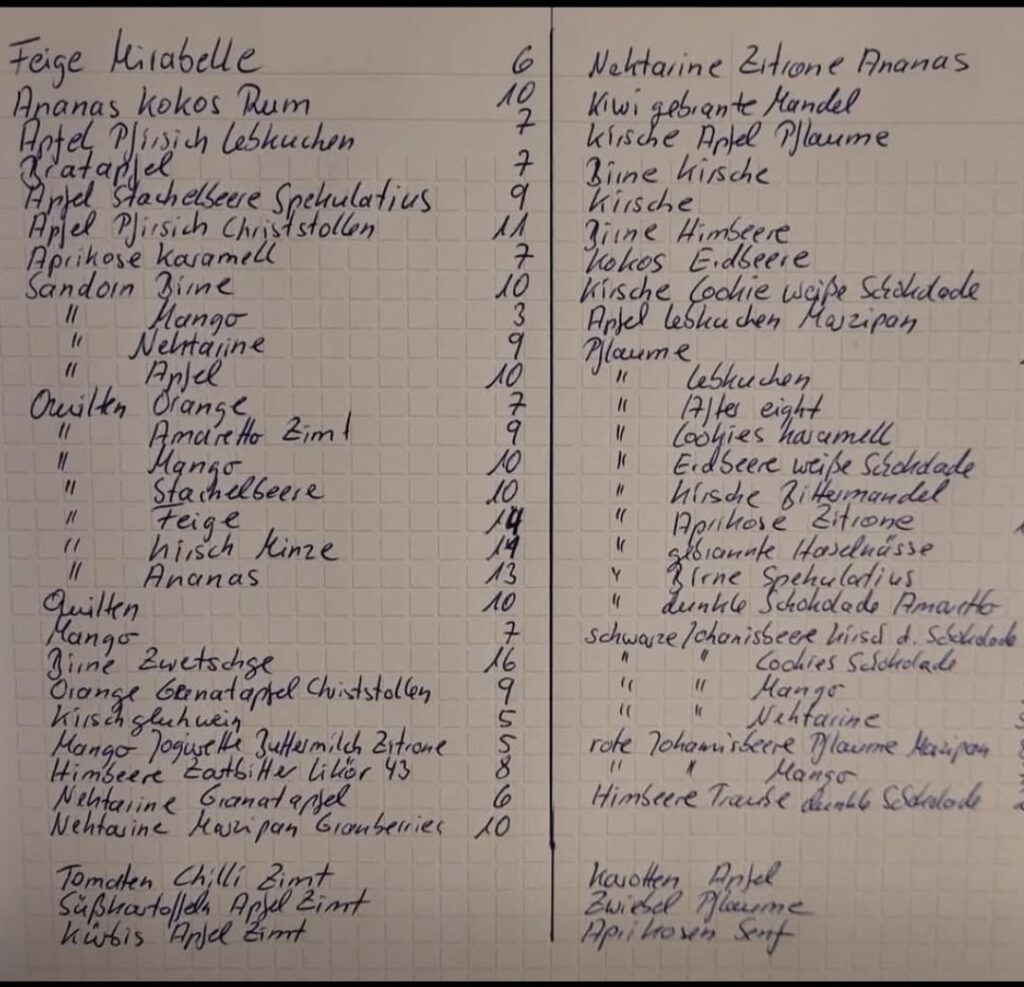 Feige Mirabelle 6
Ananas Kokos Rum 10
Apfel Pfirsich Lebkuchen 7
Bratapfel 7
Apfel Stachelbeere Spekulatius 9
Apfel Pfirsich Christstollen 11
Aprikose Karamell 7
Sandorn Birne 10
" Mango 3
" Nektarine 9
" Apfel 10
Quitten Orange 7
" Amaretto Zimt 9
" Mango 10
" Stachelbeere 10
" Feige 14
" Kirsch Minze 14
" Ananas 13
Quitten 10
Mango 7
Birne Zwetschge 16
Orange Granatapfel Christstollen 9
Kirschgluhwein 5
Mango Jogurette Buttermilch Zitrone 5
Himbeere Zartbitter Likör 43 8
Nektarine Granatapfel 6
Nektarine Marzipan Cranberries 10
Tomaten Chilli Zimt
Süßkartoffeln Apfel Zimt
Kürbis Apfel Zimt
Nektarine Zitrone Ananas
Kiwi gebrante Mandel
Kirsche Apfel Pflaume
Birne Kirsche
Kirsche
Birne Himbeere
Kokos Erdbeere
Kirsche Cookie weiße Schokolade
Apfel Lebkuchen Marzipan
Pflaume
" Lebkuchen
" After eight
" Cookies Karamell
" Erdbeere weiße Schokolade
" Kirsche Bittermandel
" Aprikose Zitrone
" gebrannte Haselnüsse
" Birne Spekulatius
" dunkle Schokolade Amaretto
schwarze Johanisbeere Kirsch d. Schokolade
" " Cookies Schokolade
" " Mango
" " Nektarine
rote Johanisbeere Pflaume Marzipan
" " Mango
Himbeere Traube dunkle Schokolade
Karotten Apfel
Zwiebel Pflaume
Aprikosen Senf